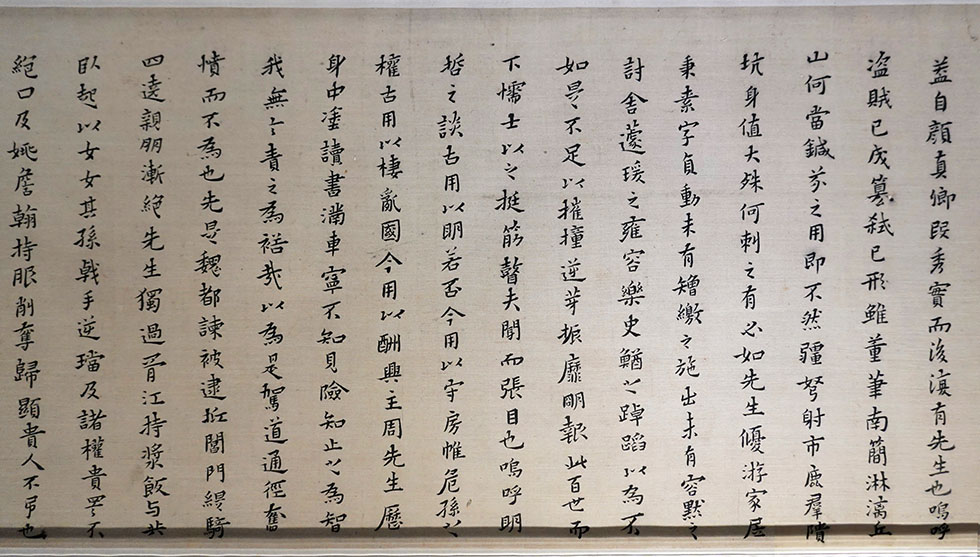 益自顔真卿段秀實而後復有先生也嗚呼
盜賊已成篡弑已形雖董筆南簡淋漓丘
山何當鍼芥之用即不然彊弩射市麋羣隤
坑身值大殊何刺之有必如先生優游家居
秉素字貞動未有矰繳之施出未有容默之
討舍蘧瑗之雍容樂史鰌之踔蹈以為不
如是不足以摧撞逆芽振靡明報此百世而
下懦士以之挺筋瞽夫聞而張目也嗚呼明
哲之談古用以明若否今用以守房帷危孫之
權古用以棲亂國今用以酬興主周先生歷
身中塗讀書澫車寧不知見險知止之為智
我無言責之為裕哉以為是駕道通徑奮
憤而不為也先是魏都諫被逮抵閶門緹騎
四逵親朋漸絕先生獨過胥江持漿飯与共
臥起以女女其孫戟手逆璫及諸權貴詈不
絕口及姚詹翰持服削奪歸顯貴人不弔也